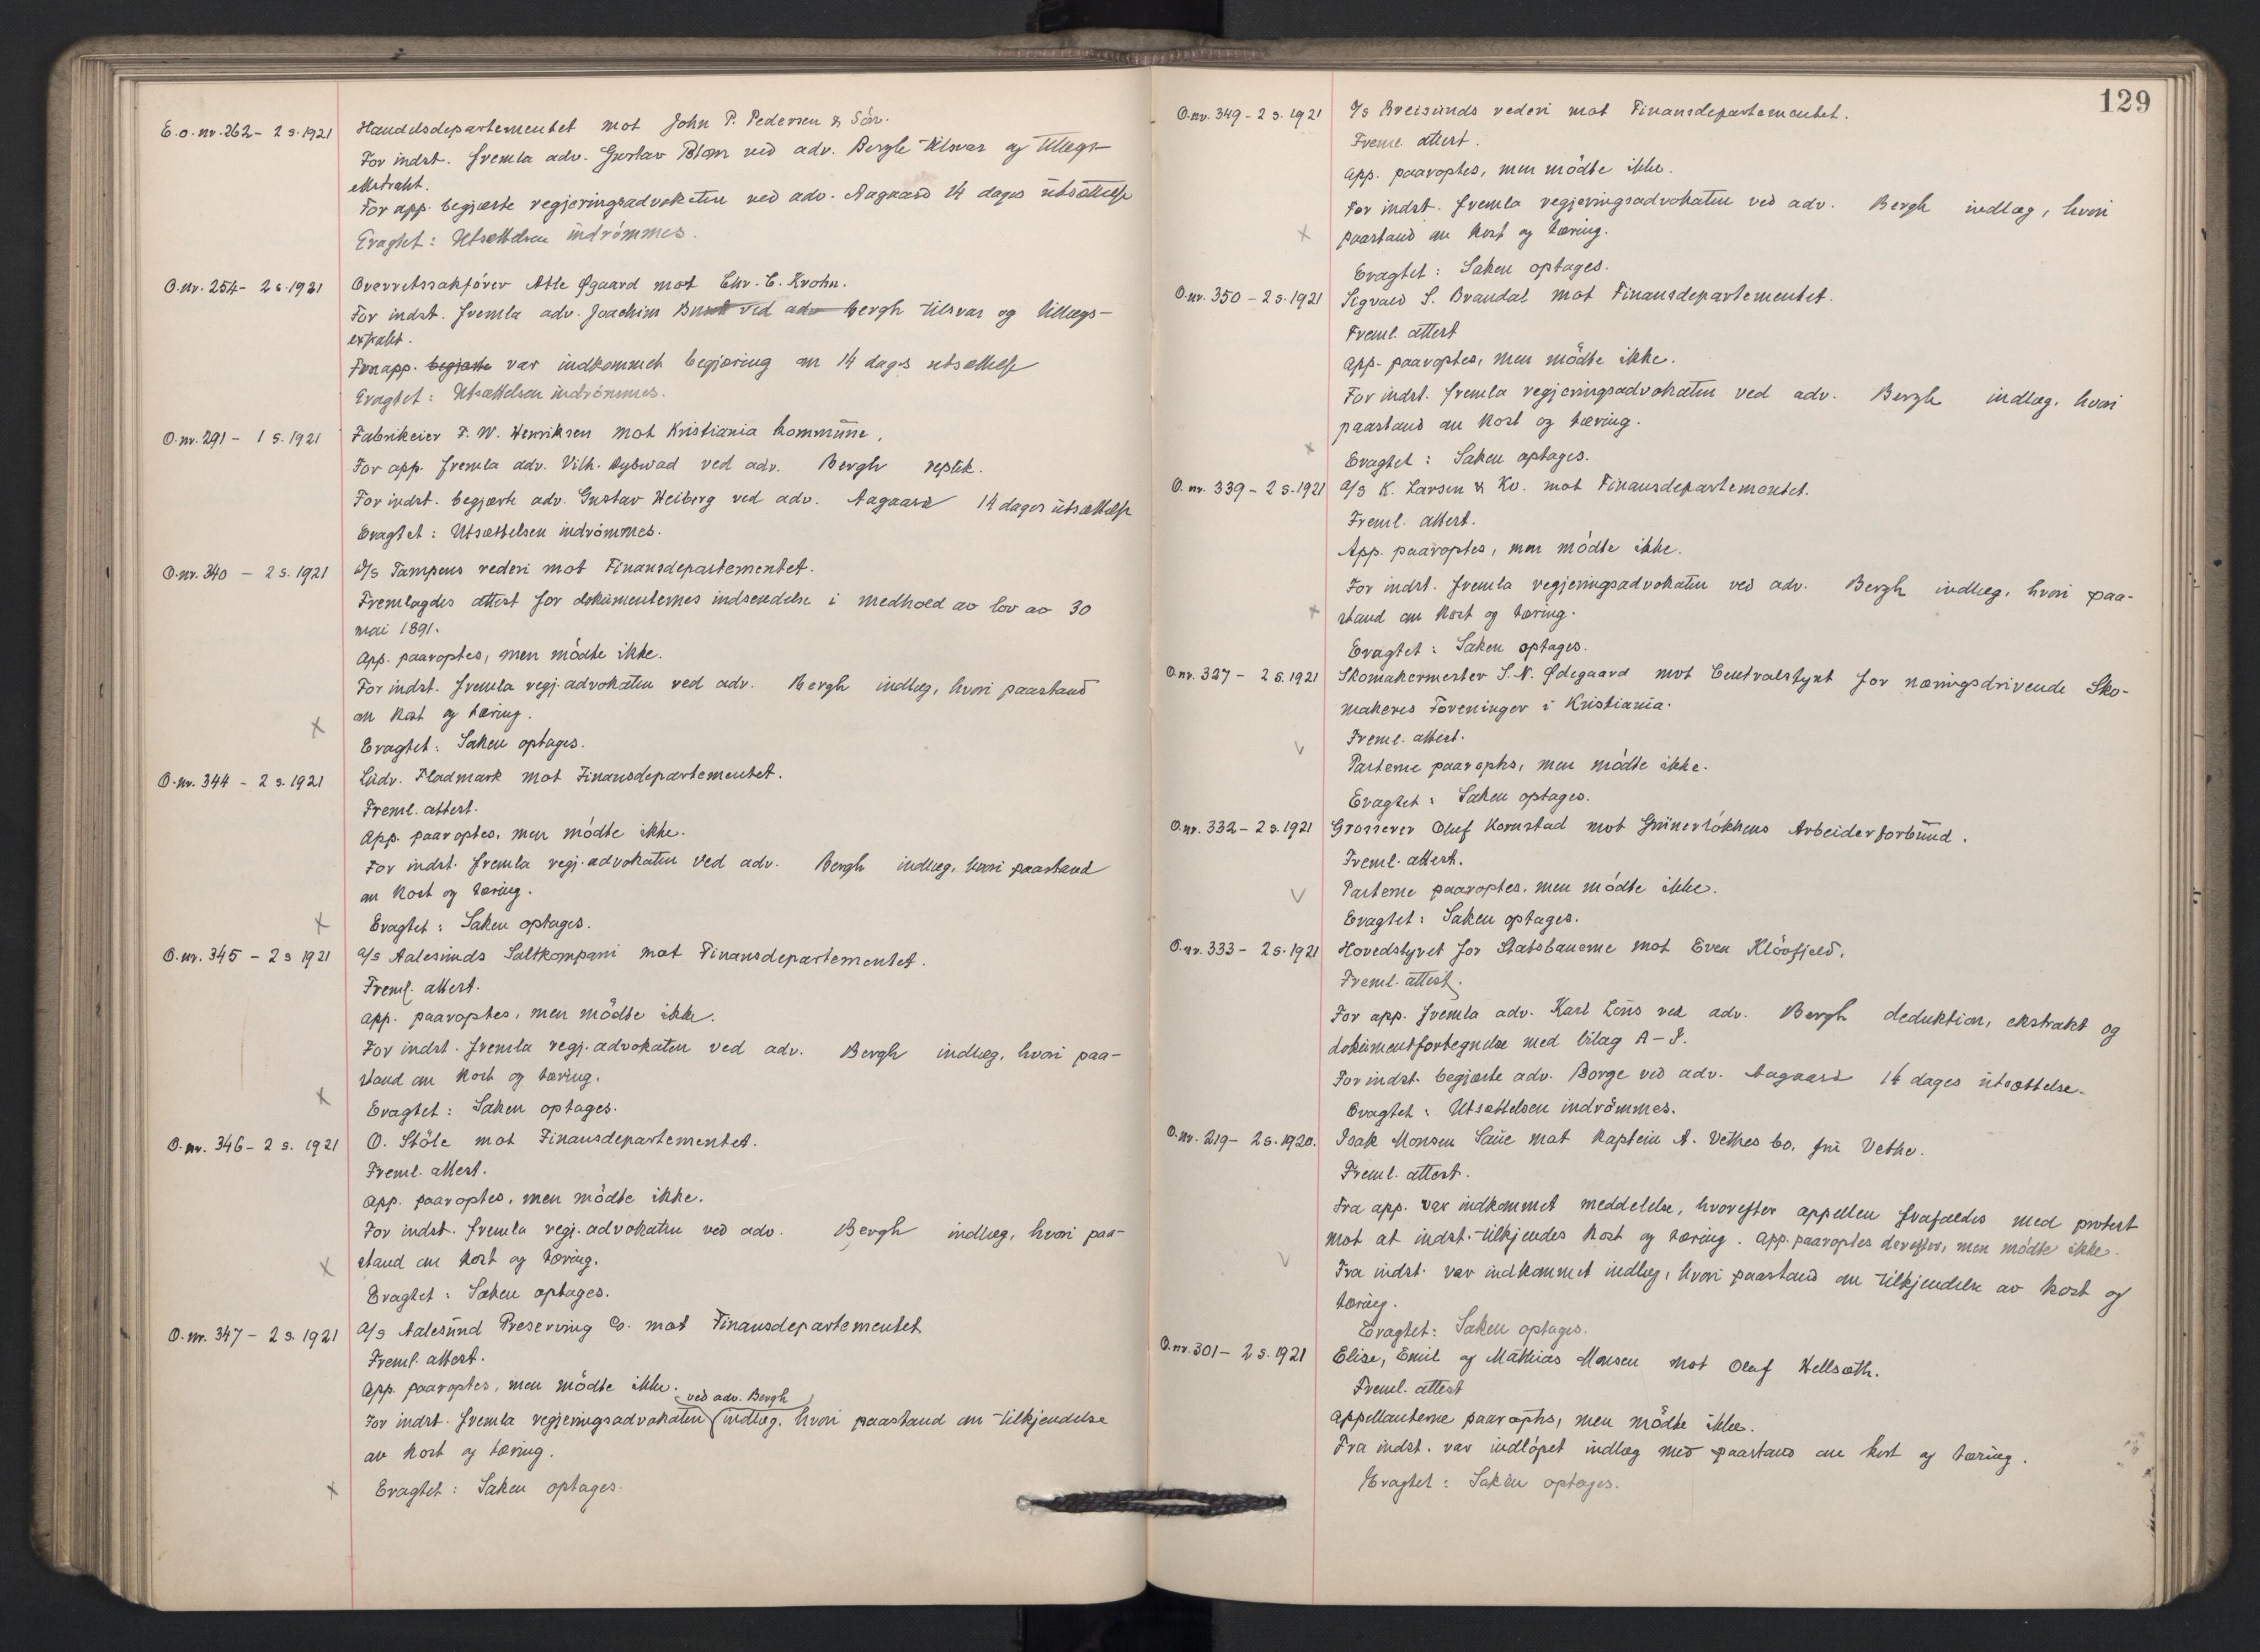 E.o.nr. 262 - 2 s. 1921 Handelsdepartementet mot John P. Pedersen & Sön.
For indst. fremla adv. Gustav Blom ved adv. Bergh tilsvar og tillægs-
ekstrakt.
For app. begjærte regjeringsadvokaten ved adv. Aagaard 14 dages utsættelse
Eragtet: Utsættelsen indrömmes.
O.nr. 254 - 2 s. 1921 Overretssakförer Atle Øgaard mot Chr. C. Krohn.
For indst. fremla adv. Joachim Bush ved adv Bergh tilsvar og tillægs-
extrakt.
Fra app. begjærte var indkommet begjæring om 14 dages utsættelse
Eragtet: Utsættelsen indrömmes.
O.nr. 291 - 1 s. 1921 Fabrikeier F. W. Henriksen mot Kristiania kommune.
For app. fremla adv. Vilh. Dybwad ved adv. Bergh replik.
For indst. begjærte adv. Gustav Heiberg ved adv. Aagaard 14 dages utsættelse
Eragtet: Utsættelsen indrömmes.
O.nr. 340 - 2 s. 1921 A/S Tampens rederi mot Finansdepartementet.
Fremlagdes attest for dokumenternes indsendelse i medhold av lov av 30
mai 1891.
App. paaroptes, men mödte ikke.
For indst. fremla regj.advokaten ved adv. Bergh indlæg, hvori paastand
om kost og tæring.
x Eragtet: Saken optages.
O.nr. 344 - 2 s. 1921 Ludv. Fladmark mot Finansdepartementet.
Freml. attest.
App. paaroptes, men mödte ikke.
For indst. fremla regj.advokaten ved adv. Bergh indlæg, hvori paastand
om kost og tæring.
x Eragtet: Saken optages.
O.nr. 345 - 2 s 1921 A/S Aalesunds Saltkompani mot Finansdepartementet.
Freml. attest.
App. paaroptes, men mödte ikke.
For indst. fremla regj.advokaten ved adv. Bergh indlæg, hvori paa-
stand om kost og tæring.
x Eragtet: Saken optages.
O.nr. 346 - 2 s. 1921 O. Stöle mot Finansdepartementet.
Freml. attest.
App. paaroptes, men mödte ikke.
For indst. fremla regj.advokaten ved adv. Bergh indlæg, hvori paa-
x stand om kost og tæring.
Eragtet: Saken optages.
O.nr. 347 - 2 s. 1921 A/S Aalesund Preserving Co. mot Finansdepartementet
Freml. attest.
App. paaroptes, men mödte ikke.
ved adv. Bergh
For indst. fremla regjeringsadvokaten indlæg, hvori paastand om tilkjendelse
av kost og tæring.
x Eragtet: Saken optages.
129
O.nr. 349 - 2 s. 1921 A/S Breisunds rederi mot Finansdepartementet.
Freml. attest.
App. paaroptes, men mödte ikke.
For indst. fremla regjeringsadvokaten ved adv. Bergh indlæg, hvori
x paastand om kost og tæring.
Eragtet: Saken optages.
O.nr. 350 - 2 s. 1921 Sigvald S. Brandal mot Finansdepartementet.
Freml. attest
App. paaroptes, men mödte ikke.
For indst. fremla regjeringsadvokaten ved adv. Bergh indlæg, hvori
paastand om kost og tæring.
x Eragtet: Saken optages.
O.nr. 339 - 2 s. 1921 A/S K. Larsen & Ko. mot Finansdepartementet.
Freml. attest.
App. paaroptes, men mödte ikke.
For indst. fremla regjeringsadvokaten ved adv. Bergh indlæg, hvori paa-
x stand om kost og tæring.
Eragtet: Saken optages.
O.nr. 327 - 2 s. 1921 Skomakermester S. N. Ødegaard mot Centralstyret for næringsdrivende Sko-
makeres Foreninger i Kristiania.
v Freml. attest.
Parterne paaroptes, men mödte ikke.
Eragtet: Saken optages.
O.nr. 332 - 2 s. 1921 Grosserer Oluf Kornstad mot Grünerlökkens Arbeiderforbund.
Freml. attest.
v Parterne paaroptes, men mödte ikke.
Eragtet: Saken optages.
O.nr. 333 - 2 s. 1921 Hovedstyret for Statsbanerne mot Even Klövfjeld.
Freml. attest.
For app. fremla adv. Karl Lous ved adv. Bergh deduktion, ekstrakt og
dokumentfortegnelse med bilag A - J.
For indst. begjærte adv. Borge ved adv. Aagaard 14 dages utsættelse.
Eragtet: Utsættelsen indrömmes.
O.nr. 219 - 2 s. 1920. Isak Monsen Saue mot kaptein A. Vethes bo, fru Vethe.
Freml. attest.
Fra app. var indkommet meddelelse, hvorefter appellen frafaldes med protest
mot at indst. tilkjendes kost og tæring. App. paaroptes derefter, men mödte ikke.
v Fra indst. var indkommet indlæg, hvori paastand om tilkjendelse av kost og
tæring.
Eragtet: Saken optages.
O.nr. 301 - 2 s. 1921 Elise, Emil og Mathias Monsen mot Oluf Wellsæth.
Freml. attest
Appellanterne paaroptes, men mödte ikke.
Fra indst. var indlöpet indlæg med paastand om kost og tæring.
Eragtet: Saken optages.